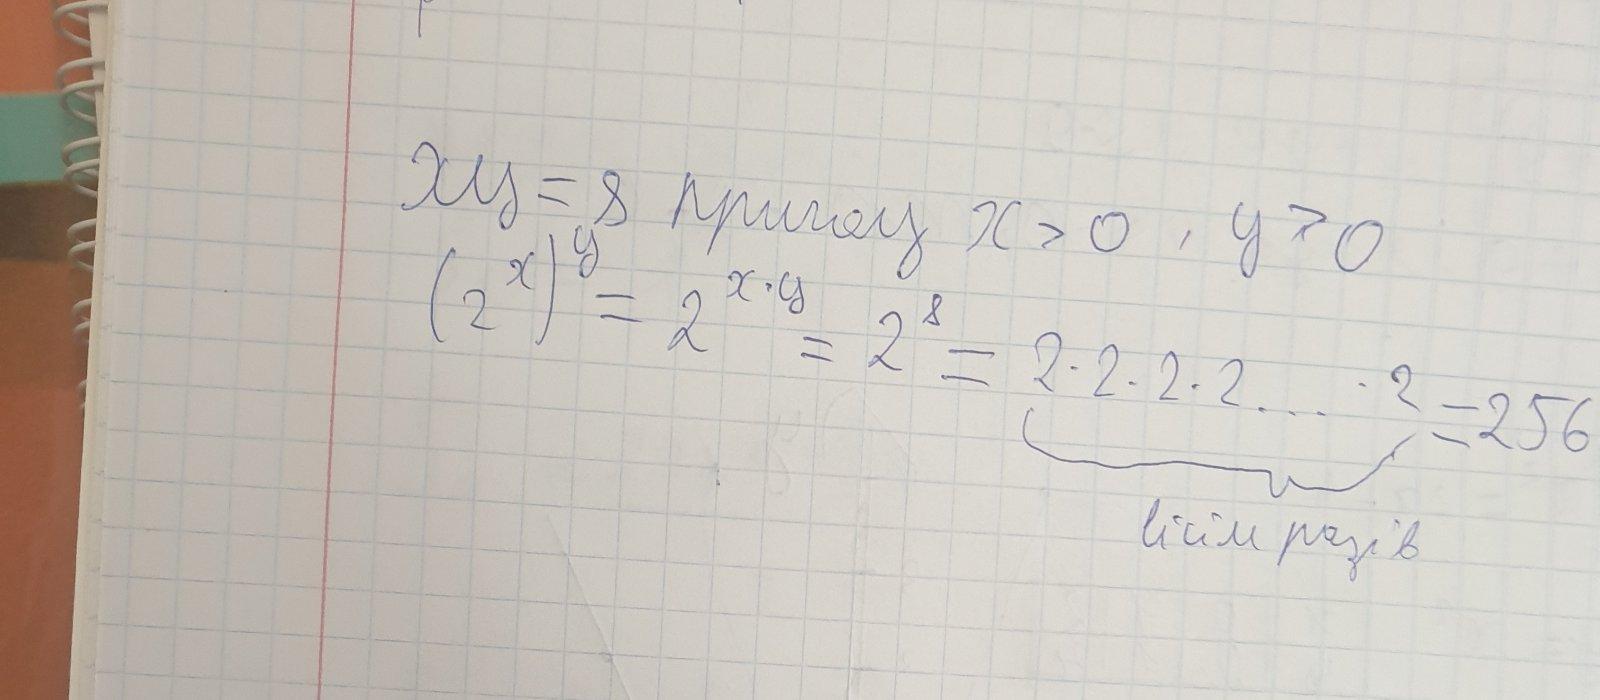 xy = 8 причому x > 0, y > 0
(2^x)^y = 2^{x·y} = 2^8 = 2·2·2·2.... ·2 = 256
вісім разів